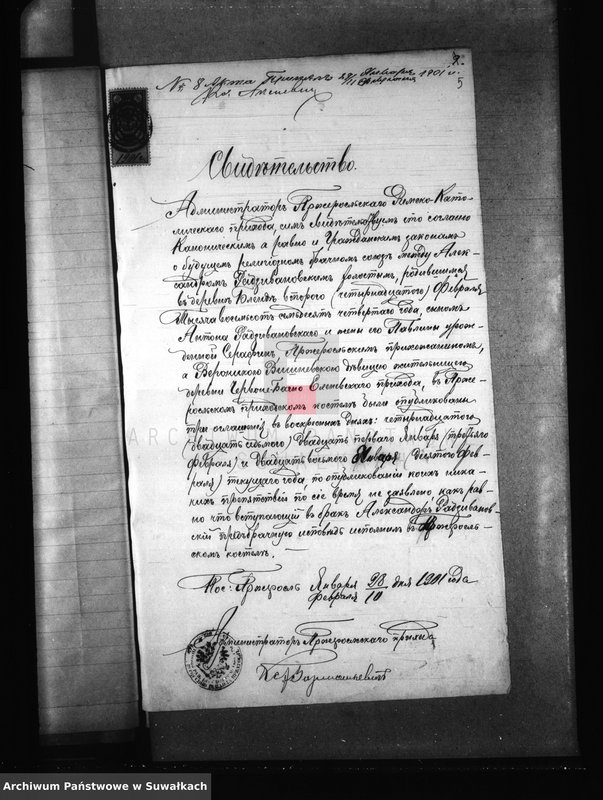 № 8 Акта 28 Января 1901 г.
5
Свидѣтельство.
Администраторъ Римско-Като-
лическаго прихода, симъ свидѣтельствуетъ что согласно
Каноническимъ а равно и Гражданскимъ законамъ
о будущемъ религіозномъ брачномъ союзѣ между Алек-
сандромъ Радзивановскимъ холостымъ, родившимся
въ деревнѣ второго (четырнадцатого) Февраля
Тысяча восемьсотъ семьдесятъ четвертаго года, сыномъ
Антона Радзивановскаго и жены его Павлины урож-
денной прихожаниномъ,
а Вероникою Вишневскою дѣвицею жительницею
деревни Червоне-Багно прихода, въ
приходскомъ костелѣ были опубликованы
три оглашенія въ воскресные дни: четырнадцатого
(двадцать седьмого) двадцать перваго Января (третьяго
Февраля) и двадцать восьмого Января (десятого Фев-
раля) текущаго года, по опубликованіи коихъ ника-
кихъ препятствій по сіе время не заявлено какъ рав-
но что вступающій въ бракъ Александръ Радзиванов-
скій предбрачную исповѣдь исполнилъ въ
скомъ костелѣ.
Пос. Января 28 дня 1901 года
Февраля 10
Администраторъ прихода
Archiwum Państwowe w Suwałkach